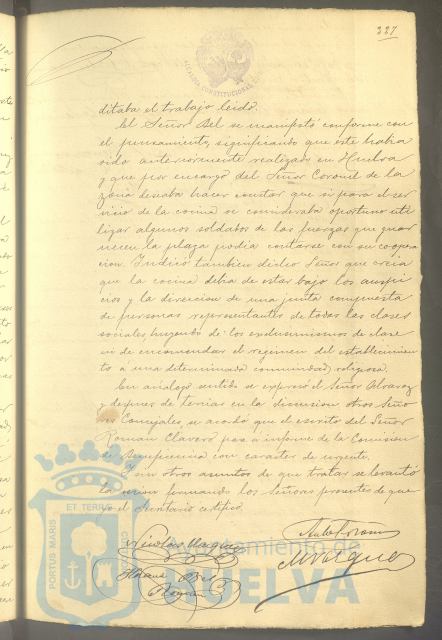 227
ALCALDIA CONSTITUCIONAL
ditaba el trabajo leido.
El Señor Bel se manifestó conforme con
el pensamiento, significando que este habia
sido anteriormente realizado en Huelva
y que por encargo del Señor Coronel de la
zona deseaba hacer constar que si para el ser
vicio de la cocina se consideraba oportuno uti
lizar algunos soldados de las fuerzas que guar
necen la plaza podia contarse con su coopera
cion. Indicó tambien dicho Señor que creia
que la cocina debia de estar bajo los auspi
cios y la direccion de una junta compuesta
de personas representantes de todas las clases
sociales, huyendo de los exclusivismos de clase
ni de encomendar el regimen del establecimien
to a una determinada comunidad religiosa.
En análogo sentido se expresó el Señor Alvarez
y despues de terciar en la discusion otros Seño
res Concejales, se acordó que el escrito del Señor
Roman Clavero pase a informe de la Comision
de Beneficencia con caracter de urgente.
Y sin otros asuntos de que tratar se levantó
la sesion firmando los Señores presentes de que
yo el Secretario certifico.
Nicolas Vazquez
M Vazquez
PORTUS MARIS ET TERRAE
Ayuntamiento de
HUELVA